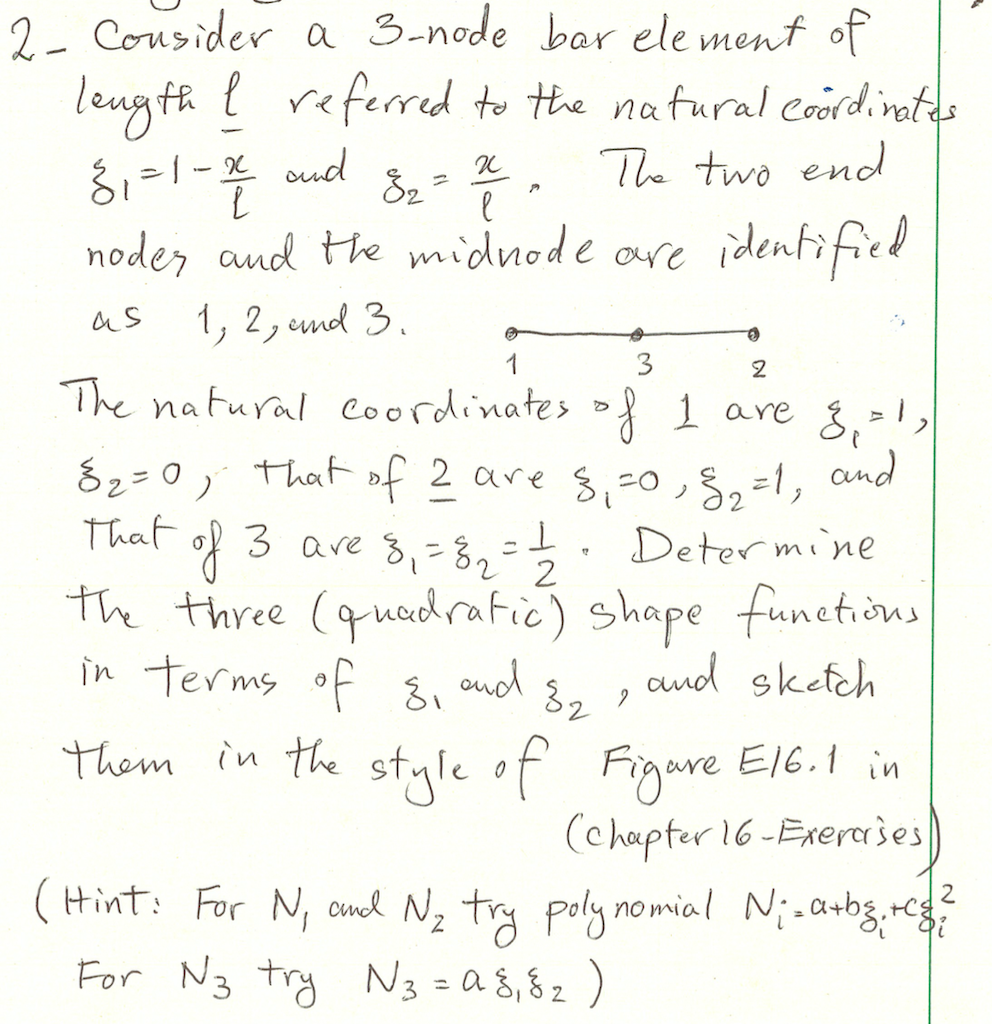 2- Consider a 3-node bar element of
length l referred to the natural coordinates
ξ₁ = 1 - x/l and ξ₂ = x/l. The two end
nodes and the midnode are identified
as 1, 2, and 3.
1 3 2
The natural coordinates of 1 are ξ₁=1,
ξ₂=0, that of 2 are ξ₁=0, ξ₂=1, and
that of 3 are ξ₁=ξ₂=1/2. Determine
the three (quadratic) shape functions
in terms of ξ₁ and ξ₂, and sketch
them in the style of Figure E16.1 in
(chapter 16 - Exercises)
(Hint: For N₁ and N₂ try polynomial Nᵢ=a+bξᵢ+cξᵢ²
For N₃ try N₃ = aξ₁ξ₂)